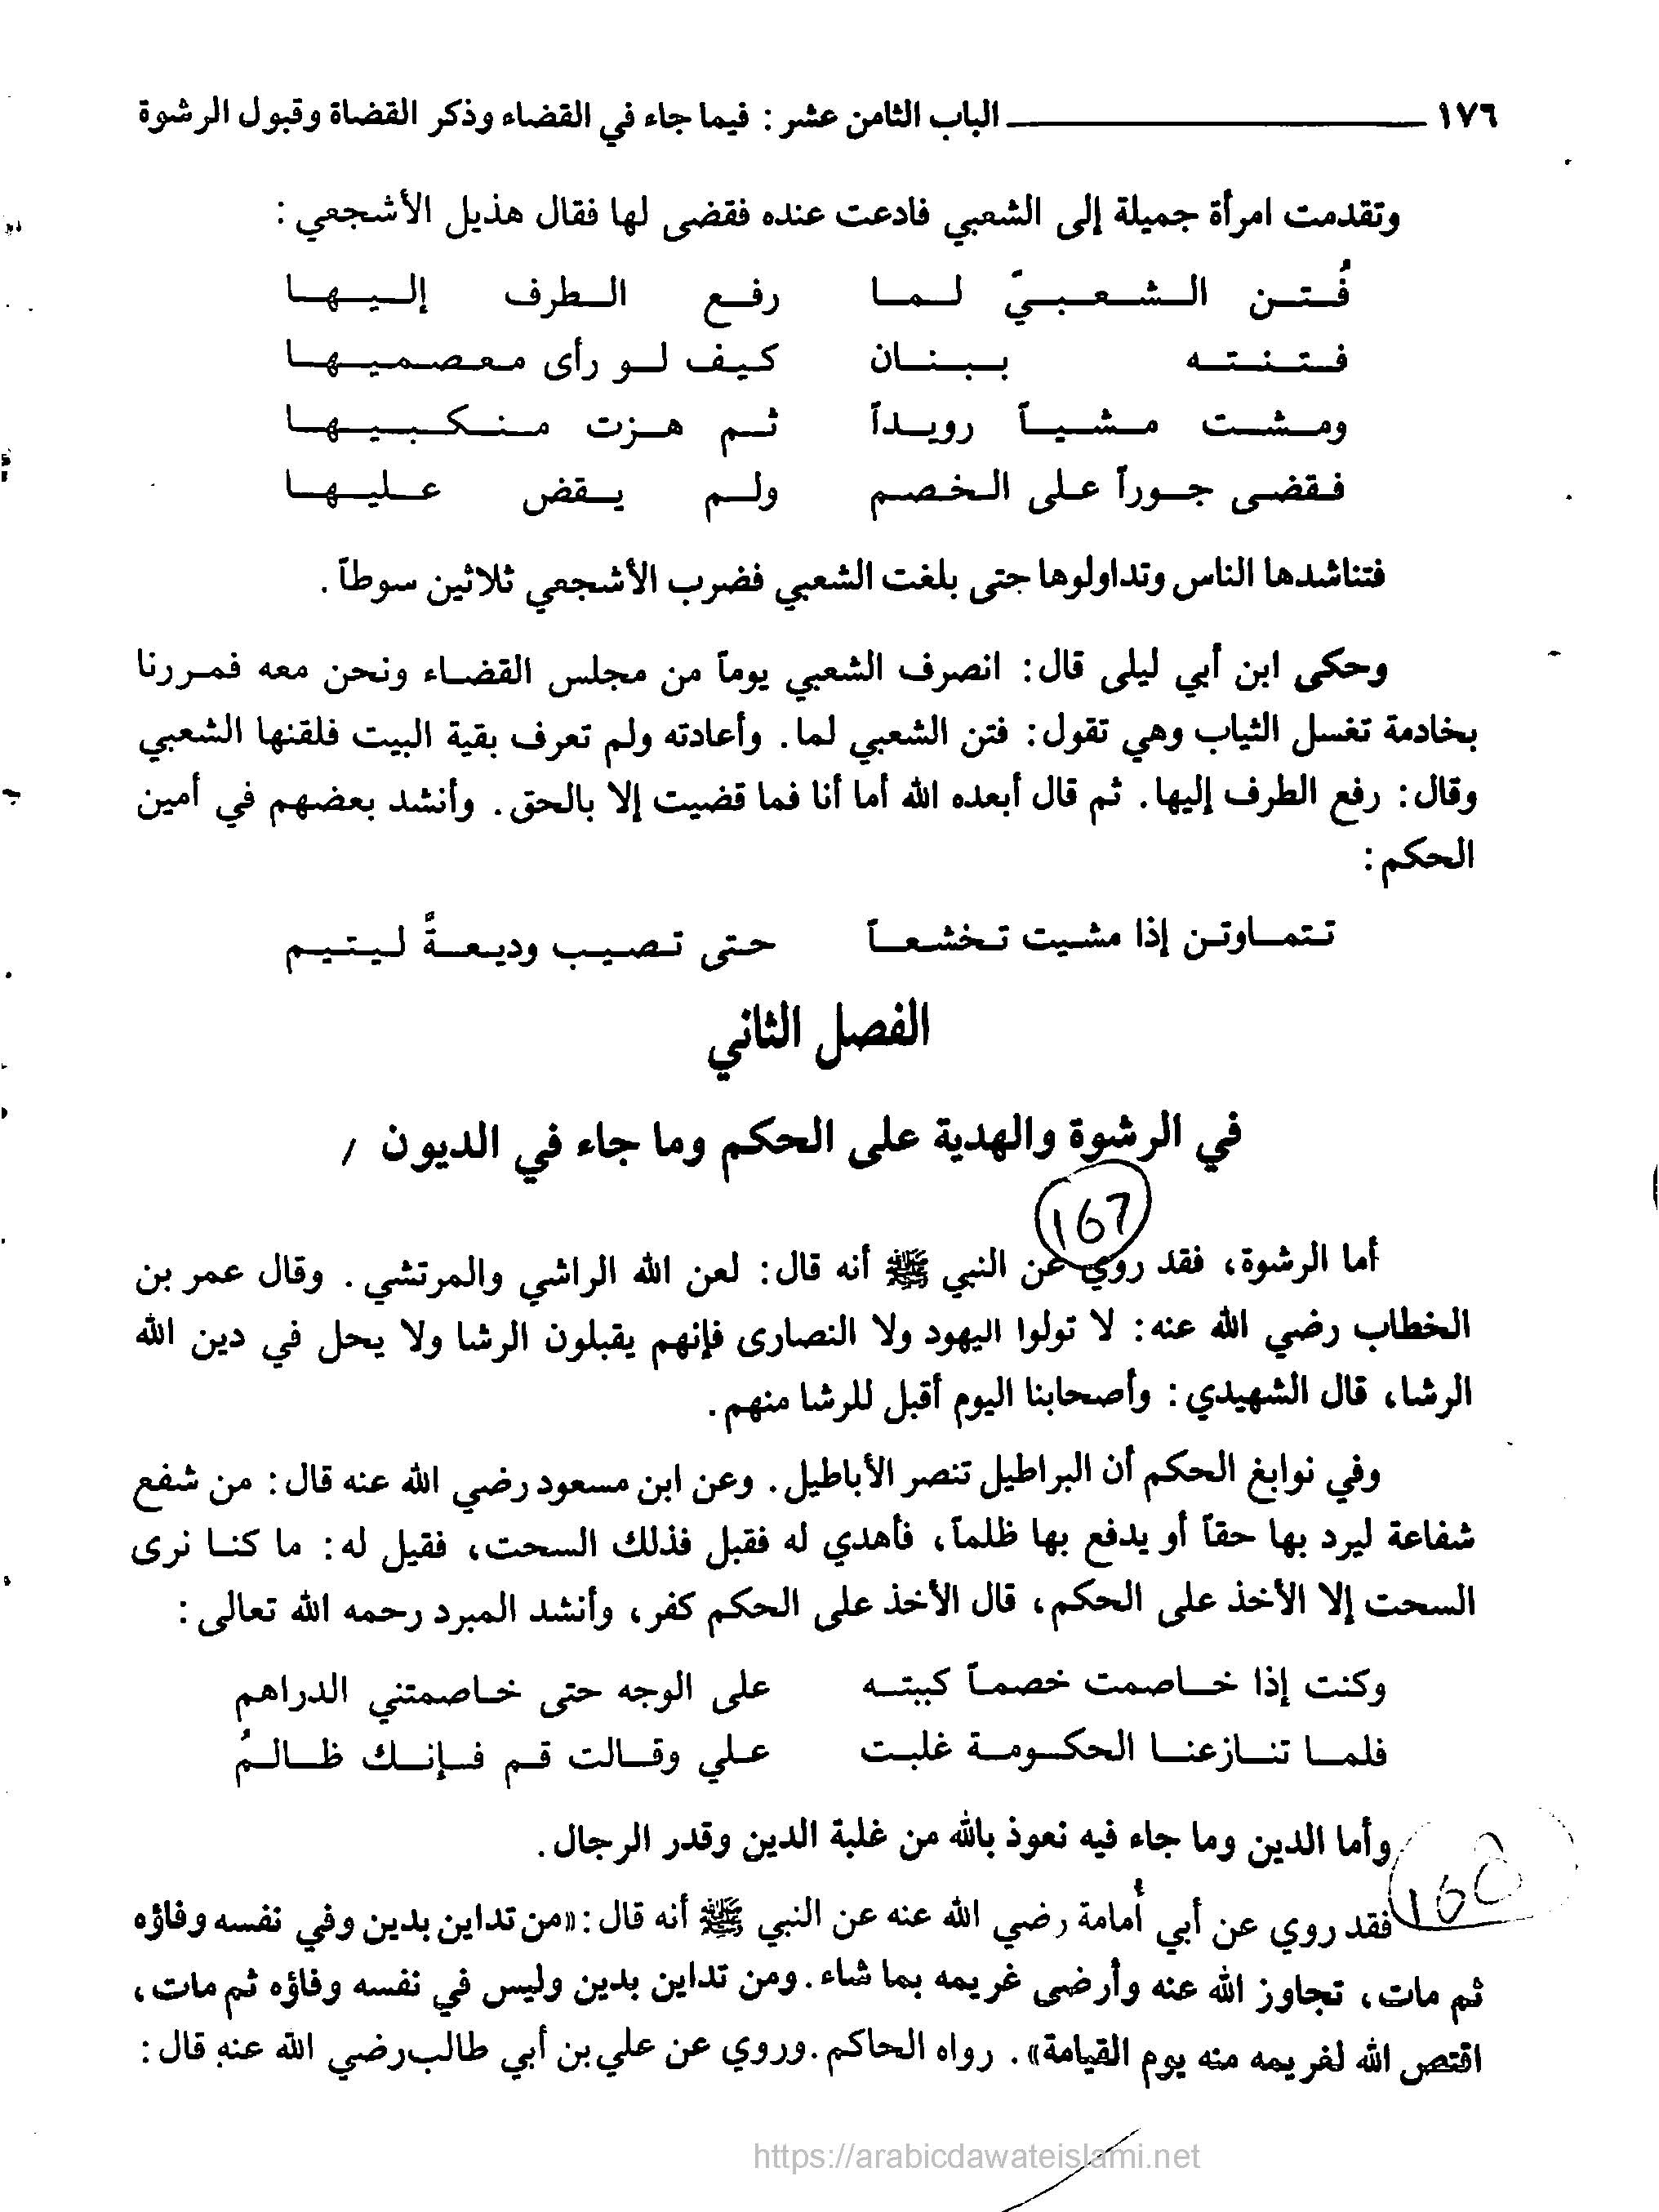 ١٧٦ الباب الثامن عشر : فيما جاء في القضاء وذكر القضاة وقبول الرشوة
وتقدمت امرأة جميلة إلى الشعبي فادعت عنده فقضى لها فقال هذيل الأشجعي :
فُتن الشعبيّ لما رفع الطرف إليها
فتنته ببنان كيف لو رأى معصميها
ومشت مشياً رويداً ثم هزت منكبيها
فقضى جوراً على الخصم ولم يقض عليها
فتناشدها الناس وتداولوها حتى بلغت الشعبي فضرب الأشجعي ثلاثين سوطاً .
وحكى ابن أبي ليلى قال : انصرف الشعبي يوماً من مجلس القضاء ونحن معه فمررنا
بخادمة تغسل الثياب وهي تقول : فتن الشعبي لما . وأعادته ولم تعرف بقية البيت فلقنها الشعبي
وقال : رفع الطرف إليها . ثم قال أبعده الله أما أنا فما قضيت إلا بالحق . وأنشد بعضهم في أمين
الحكم :
تتماوتن إذا مشيت تخشعاً حتى تصيب وديعةً ليتيم
الفصل الثاني
في الرشوة والهدية على الحكم وما جاء في الديون /
167
أما الرشوة ، فقد روي عن النبي ﷺ أنه قال : لعن الله الراشي والمرتشي . وقال عمر بن
الخطاب رضي الله عنه : لا تولوا اليهود ولا النصارى فإنهم يقبلون الرشا ولا يحل في دين الله
الرشا ، قال الشهيدي : وأصحابنا اليوم أقبل للرشا منهم .
وفي نوابغ الحكم أن البراطيل تنصر الأباطيل . وعن ابن مسعود رضي الله عنه قال : من شفع
شفاعة ليرد بها حقاً أو يدفع بها ظلماً ، فأهدي له فقبل فذلك السحت ، فقيل له : ما كنا نرى
السحت إلا الأخذ على الحكم ، قال الأخذ على الحكم كفر ، وأنشد المبرد رحمه الله تعالى :
وكنت إذا خاصمت خصماً كببته على الوجه حتى خاصمتني الدراهم
فلما تنازعنا الحكومة غلبت علي وقالت قم فإنك ظالمُ
وأما الدين وما جاء فيه نعوذ بالله من غلبة الدين وقدر الرجال .
168
فقد روي عن أبي أُمامة رضي الله عنه عن النبي ﷺ أنه قال : «من تداين بدين وفي نفسه وفاؤه
ثم مات ، تجاوز الله عنه وأرضى غريمه بما شاء . ومن تداين بدين وليس في نفسه وفاؤه ثم مات ،
اقتص الله لغريمه منه يوم القيامة» . رواه الحاكم . وروي عن علي بن أبي طالب رضي الله عنه قال :
https://arabicdawateislami.net